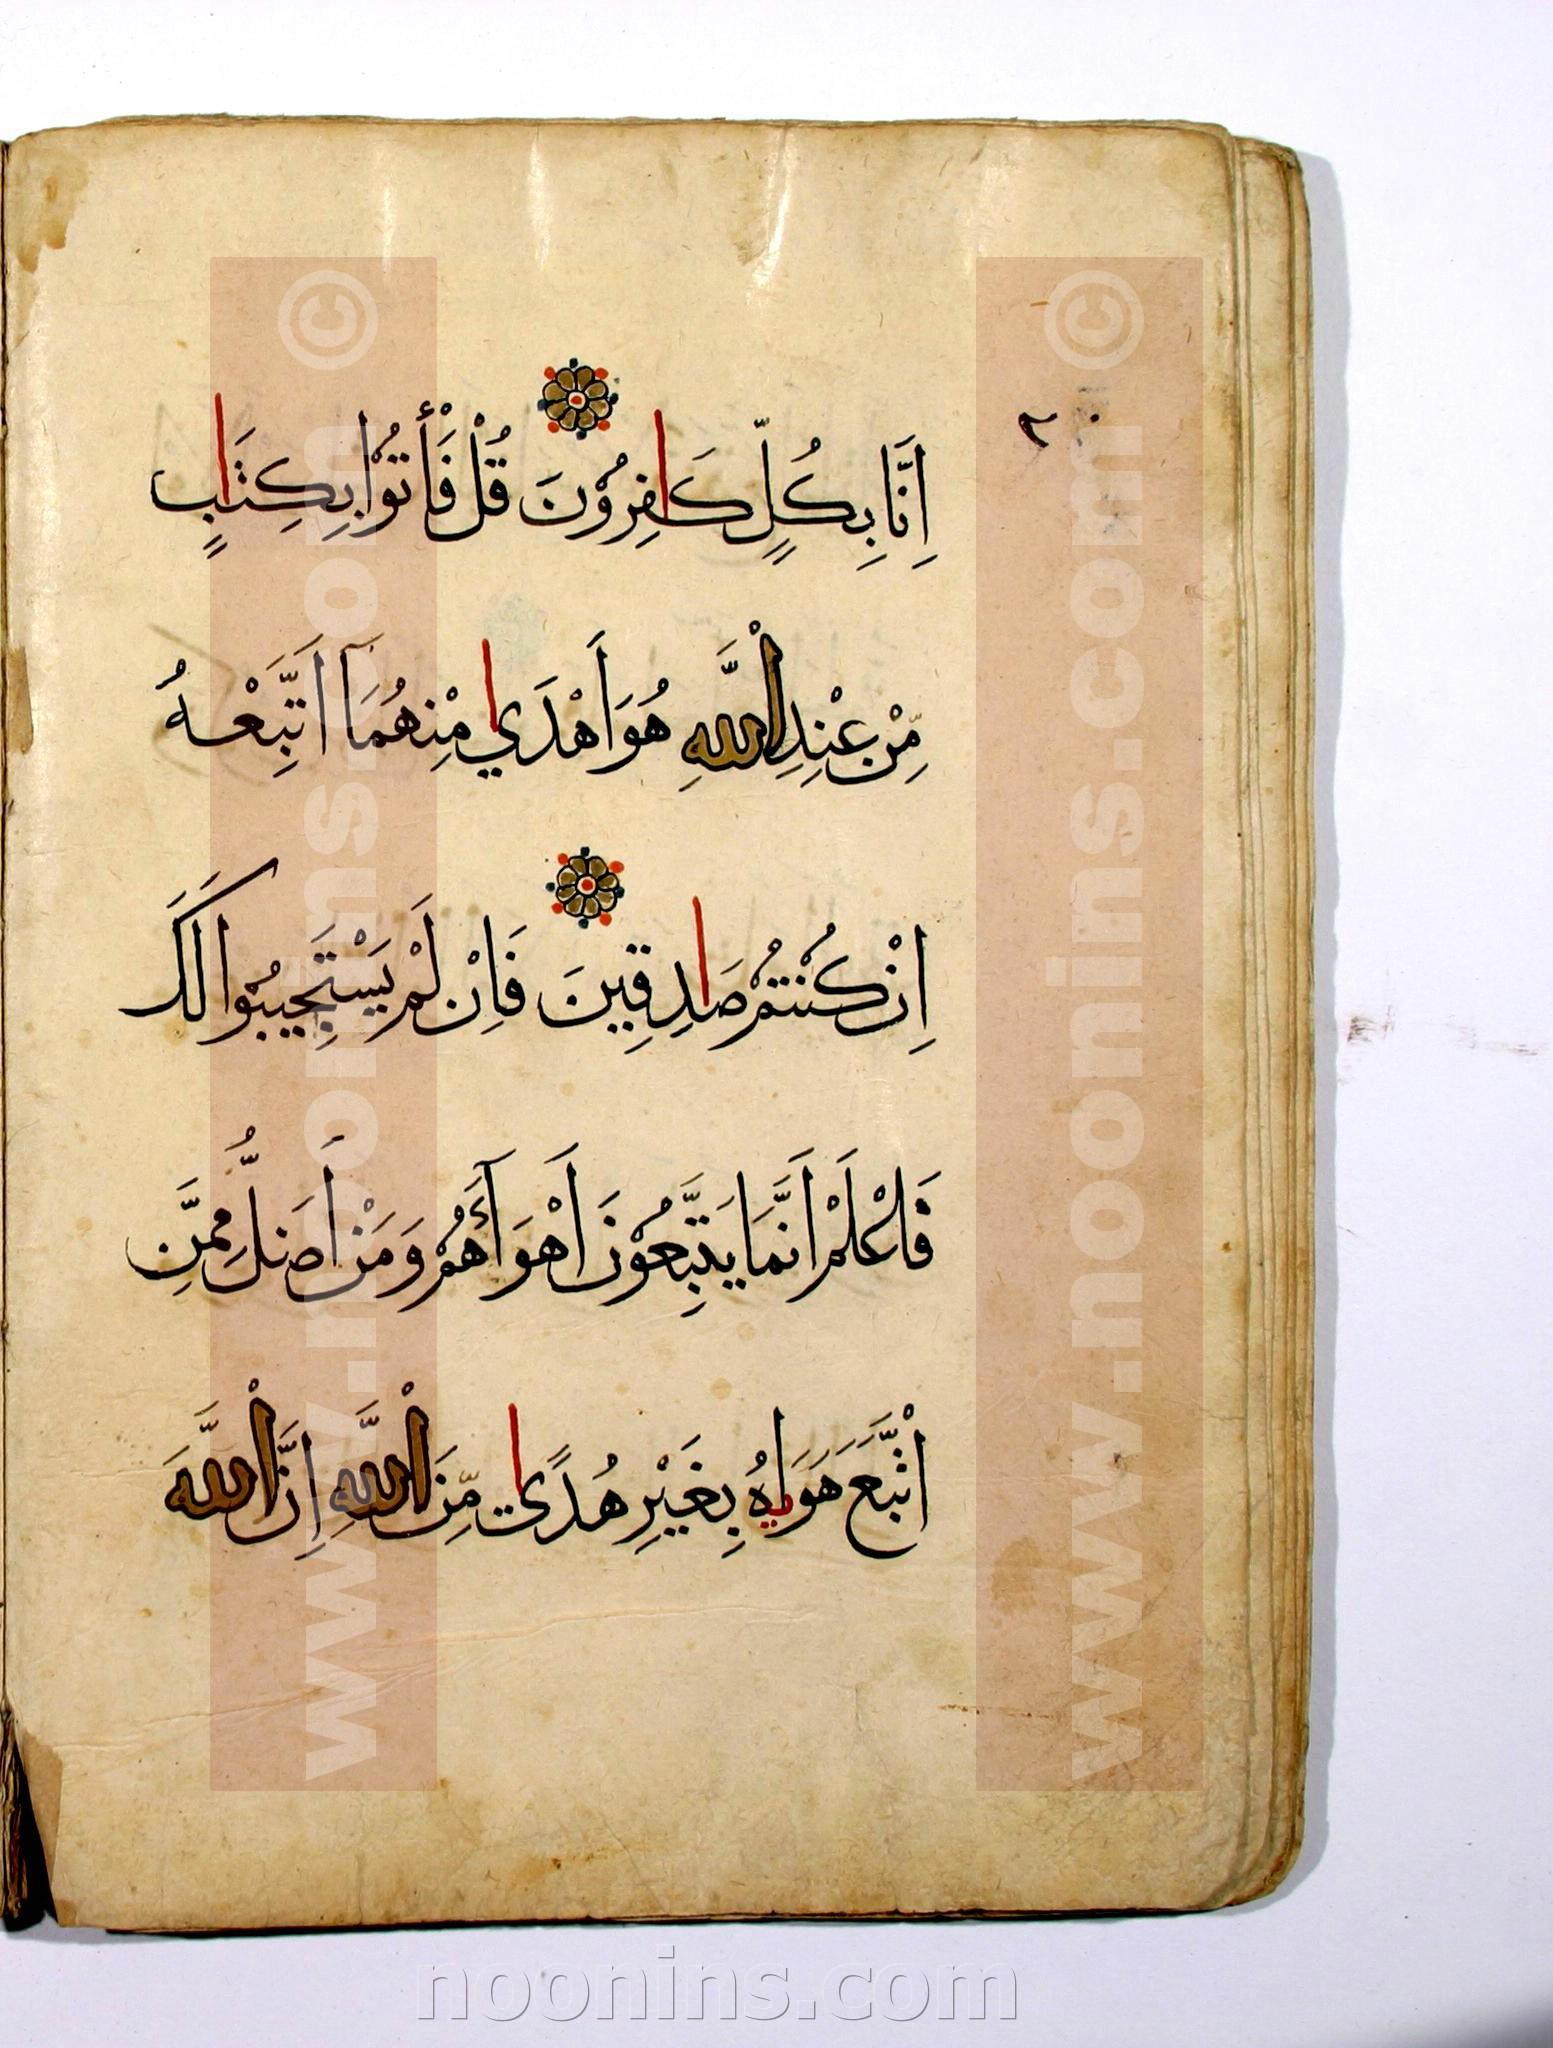 اِنَّا بِكُلٍّ كَافِرُوْنَ قُلْ فَأْتُوْا بِكِتَابٍ
مِّنْ عِنْدِ اللّٰهِ هُوَ اَهْدَي مِنْهُمَآ اَتَّبِعْهُ
اِنْ كُنْتُمْ صَادِقِينَ فَاِنْ لَمْ يَسْتَجِيبُوْا لَكَ
فَاعْلَمْ اَنَّمَا يَتَّبِعُوْنَ اَهْوَآءَهُمْ وَمَنْ اَضَلُّ مِمَّنِ
اتَّبَعَ هَوَاهُ بِغَيْرِ هُدًى مِّنَ اللّٰهِ اِنَّ اللّٰهَ
www.noonins.com ©
www.noonins.com ©
noonins.com